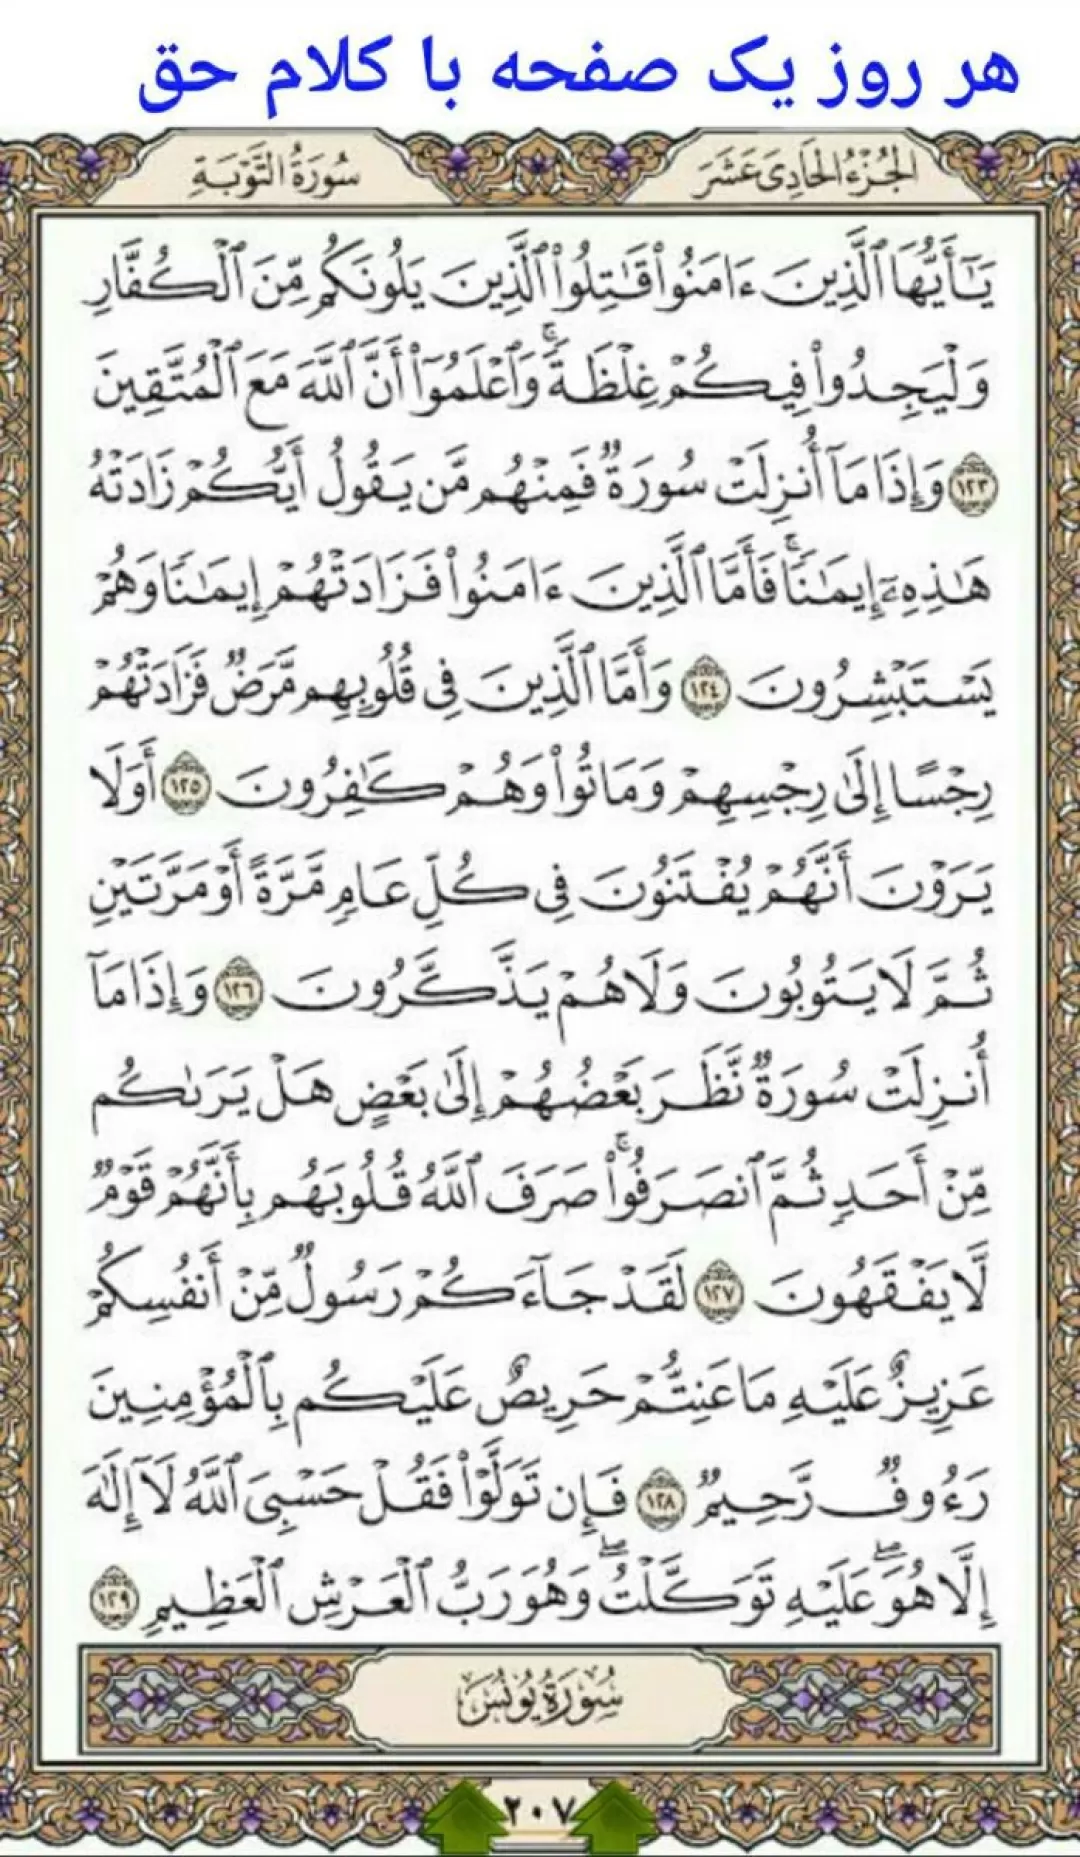 هر روز یک صفحه با کلام حق
الجُزْءُ الحَادِی عَشَرَ
سُورَةُ التَّوْبَةِ
يَـٰٓأَيُّهَا ٱلَّذِينَ ءَامَنُوا۟ قَـٰتِلُوا۟ ٱلَّذِينَ يَلُونَكُم مِّنَ ٱلْكُفَّارِ
وَلْيَجِدُوا۟ فِيكُمْ غِلْظَةً ۚ وَٱعْلَمُوٓا۟ أَنَّ ٱللَّهَ مَعَ ٱلْمُتَّقِينَ
١٢٣ وَإِذَا مَآ أُنزِلَتْ سُورَةٌ فَمِنْهُم مَّن يَقُولُ أَيُّكُمْ زَادَتْهُ
هَـٰذِهِۦٓ إِيمَـٰنًا ۚ فَأَمَّا ٱلَّذِينَ ءَامَنُوا۟ فَزَادَتْهُمْ إِيمَـٰنًا وَهُمْ
يَسْتَبْشِرُونَ ١٢٤ وَأَمَّا ٱلَّذِينَ فِى قُلُوبِهِم مَّرَضٌ فَزَادَتْهُمْ
رِجْسًا إِلَىٰ رِجْسِهِمْ وَمَاتُوا۟ وَهُمْ كَـٰفِرُونَ ١٢٥ أَوَلَا
يَرَوْنَ أَنَّهُمْ يُفْتَنُونَ فِى كُلِّ عَامٍ مَّرَّةً أَوْ مَرَّتَيْنِ
ثُمَّ لَا يَتُوبُونَ وَلَا هُمْ يَذَّكَّرُونَ ١٢٦ وَإِذَا مَآ
أُنزِلَتْ سُورَةٌ نَّظَرَ بَعْضُهُمْ إِلَىٰ بَعْضٍ هَلْ يَرَىٰكُم
مِّنْ أَحَدٍ ثُمَّ ٱنصَرَفُوا۟ ۚ صَرَفَ ٱللَّهُ قُلُوبَهُم بِأَنَّهُمْ قَوْمٌ
لَّا يَفْقَهُونَ ١٢٧ لَقَدْ جَآءَكُمْ رَسُولٌ مِّنْ أَنفُسِكُمْ
عَزِيزٌ عَلَيْهِ مَا عَنِتُّمْ حَرِيصٌ عَلَيْكُم بِٱلْمُؤْمِنِينَ
رَءُوفٌ رَّحِيمٌ ١٢٨ فَإِن تَوَلَّوْا۟ فَقُلْ حَسْبِىَ ٱللَّهُ لَآ إِلَـٰهَ
إِلَّا هُوَ ۖ عَلَيْهِ تَوَكَّلْتُ ۖ وَهُوَ رَبُّ ٱلْعَرْشِ ٱلْعَظِيمِ ١٢٩
سُورَةُ يُونُسَ
٢٠٧